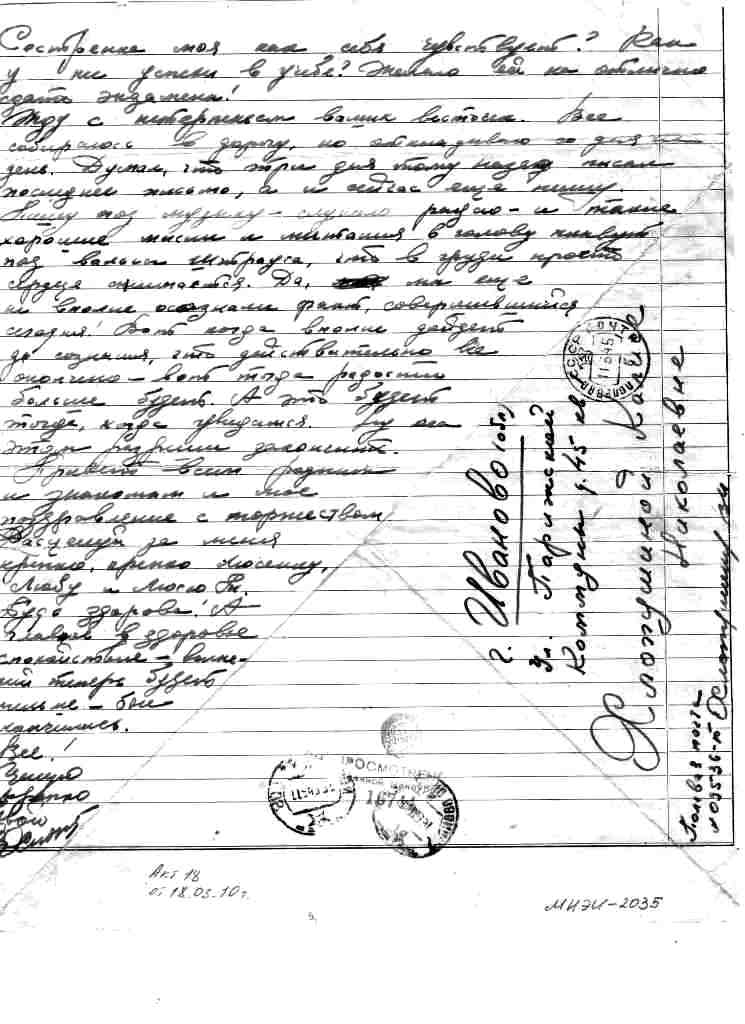 Сестренка моя как себя чувствует? Как
у ни успехи в учебе? Желаю ей на отлично
сдать экзамены!
Жду с нетерпеньем ваших весточек. Все
собиралось в дорогу, но откладываю со дня на
день. Думал, что три дня тому назад писал
последнее письмо, а и сейчас еще пишу.
Пишу под музыку - слушаю радио - и такие
хорошие мысли и мечтания в голову плывут
под вальсы Штрауса, что в груди просто
сердце сжимается. Да, мы еще
не вполне осознали факт, совершившийся
сегодня! Вот когда вполне дойдет
до сознания, что действительно все
окончено - вот тогда радости
больше будет. А это будет
тогда, когда увидимся. Ну
этом разреши закончить.
Привет всем родным
и знакомым и мое
поздравление с торжеством
Расцелуй за меня
крепко, крепко Люсеньку,
Любу и Люсю
Будь здорова! А
главное в здоровье
спокойствие -
теперь будет
бои
кончились.
Все!
Целую
крепко
твой
г. Иваново (обл)
Ул. Парижской
Коммуны д. 45 кв
Хлопушиной
Николаевне
Полевая почта
№ 03536-т
ПРОСМОТРЕНО
Акт 18
от 18.03.10 г.
МИЭИ-2035